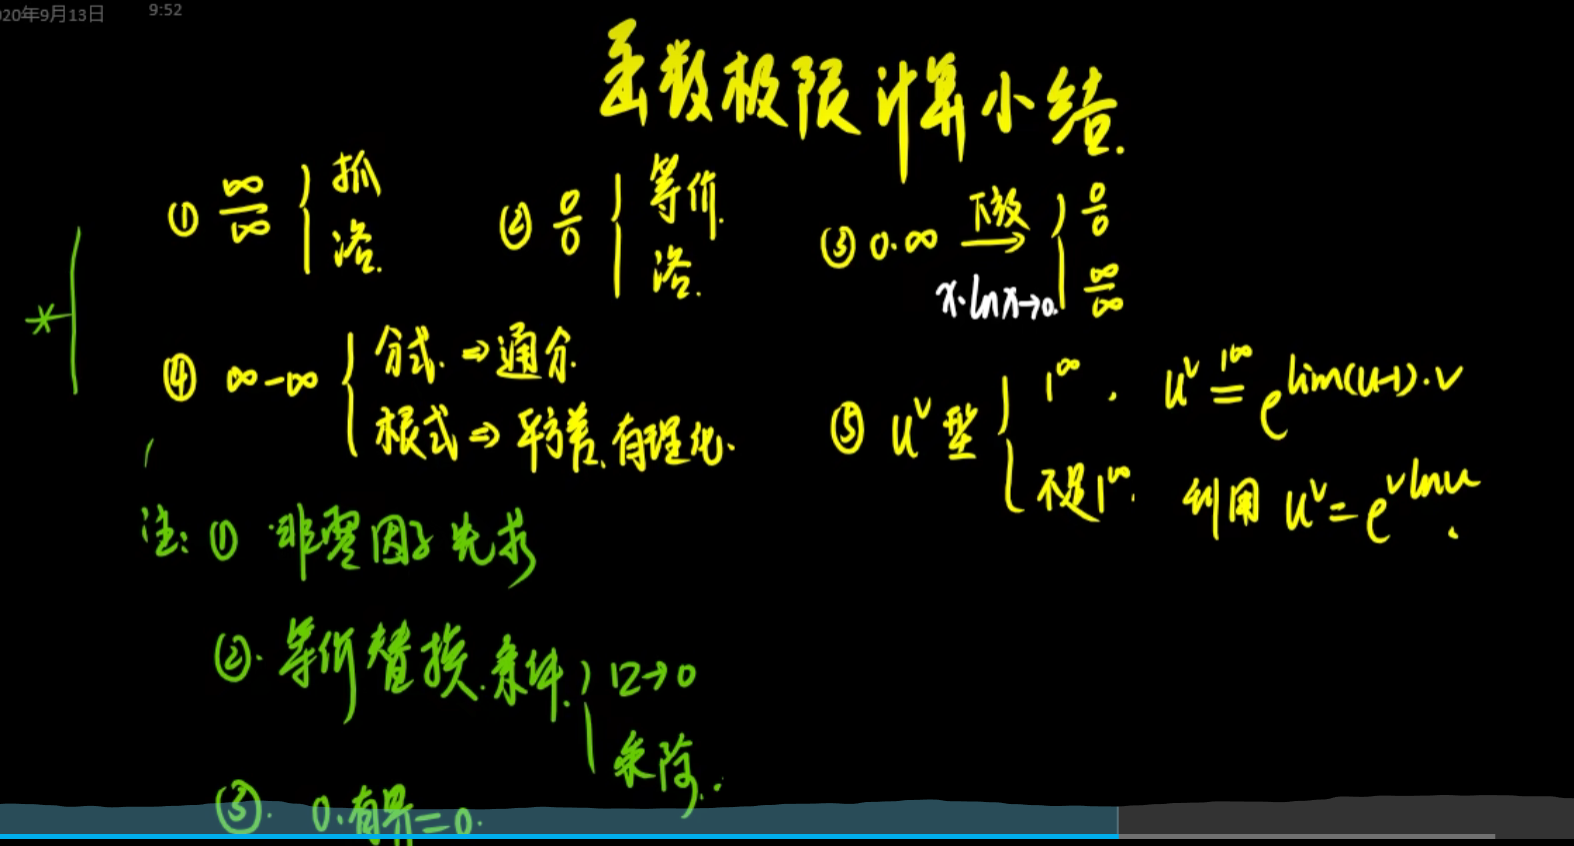 20年9月13日 9:52
函数极限计算小结.
① ∞/∞ { 抓 洛.
② 0/0 { 等价. 洛.
③ 0·∞ →下放 { 0/0 ∞/∞
x·lnx→0.
④ ∞-∞ { 分式. ⇒通分. 根式⇒平方差、有理化.
⑤ u^v型 { 1^∞. u^v =(1^∞) e^lim(u-1)·v
不是1^∞. 利用 u^v=e^vlnu.
*
注: ① 非零因子先求
②. 等价替换.条件. { □→0
乘除.
③. 0·有界=0.